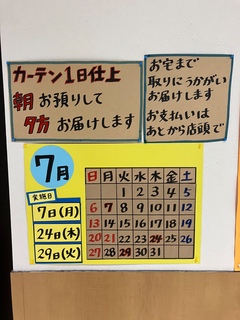 カーテン1日仕上
朝お預りして
夕方お届けします
お宅まで
取りにうかがい
お届けします
お支払いは
あとから店頭で
7月
実施日
7日(月)
24日(木)
29日(火)
日月火水木金土
1 2 3 4 5
6 7 8 9 10 11 12
13 14 15 16 17 18 19
20 21 22 23 24 25 26
27 28 29 30 31